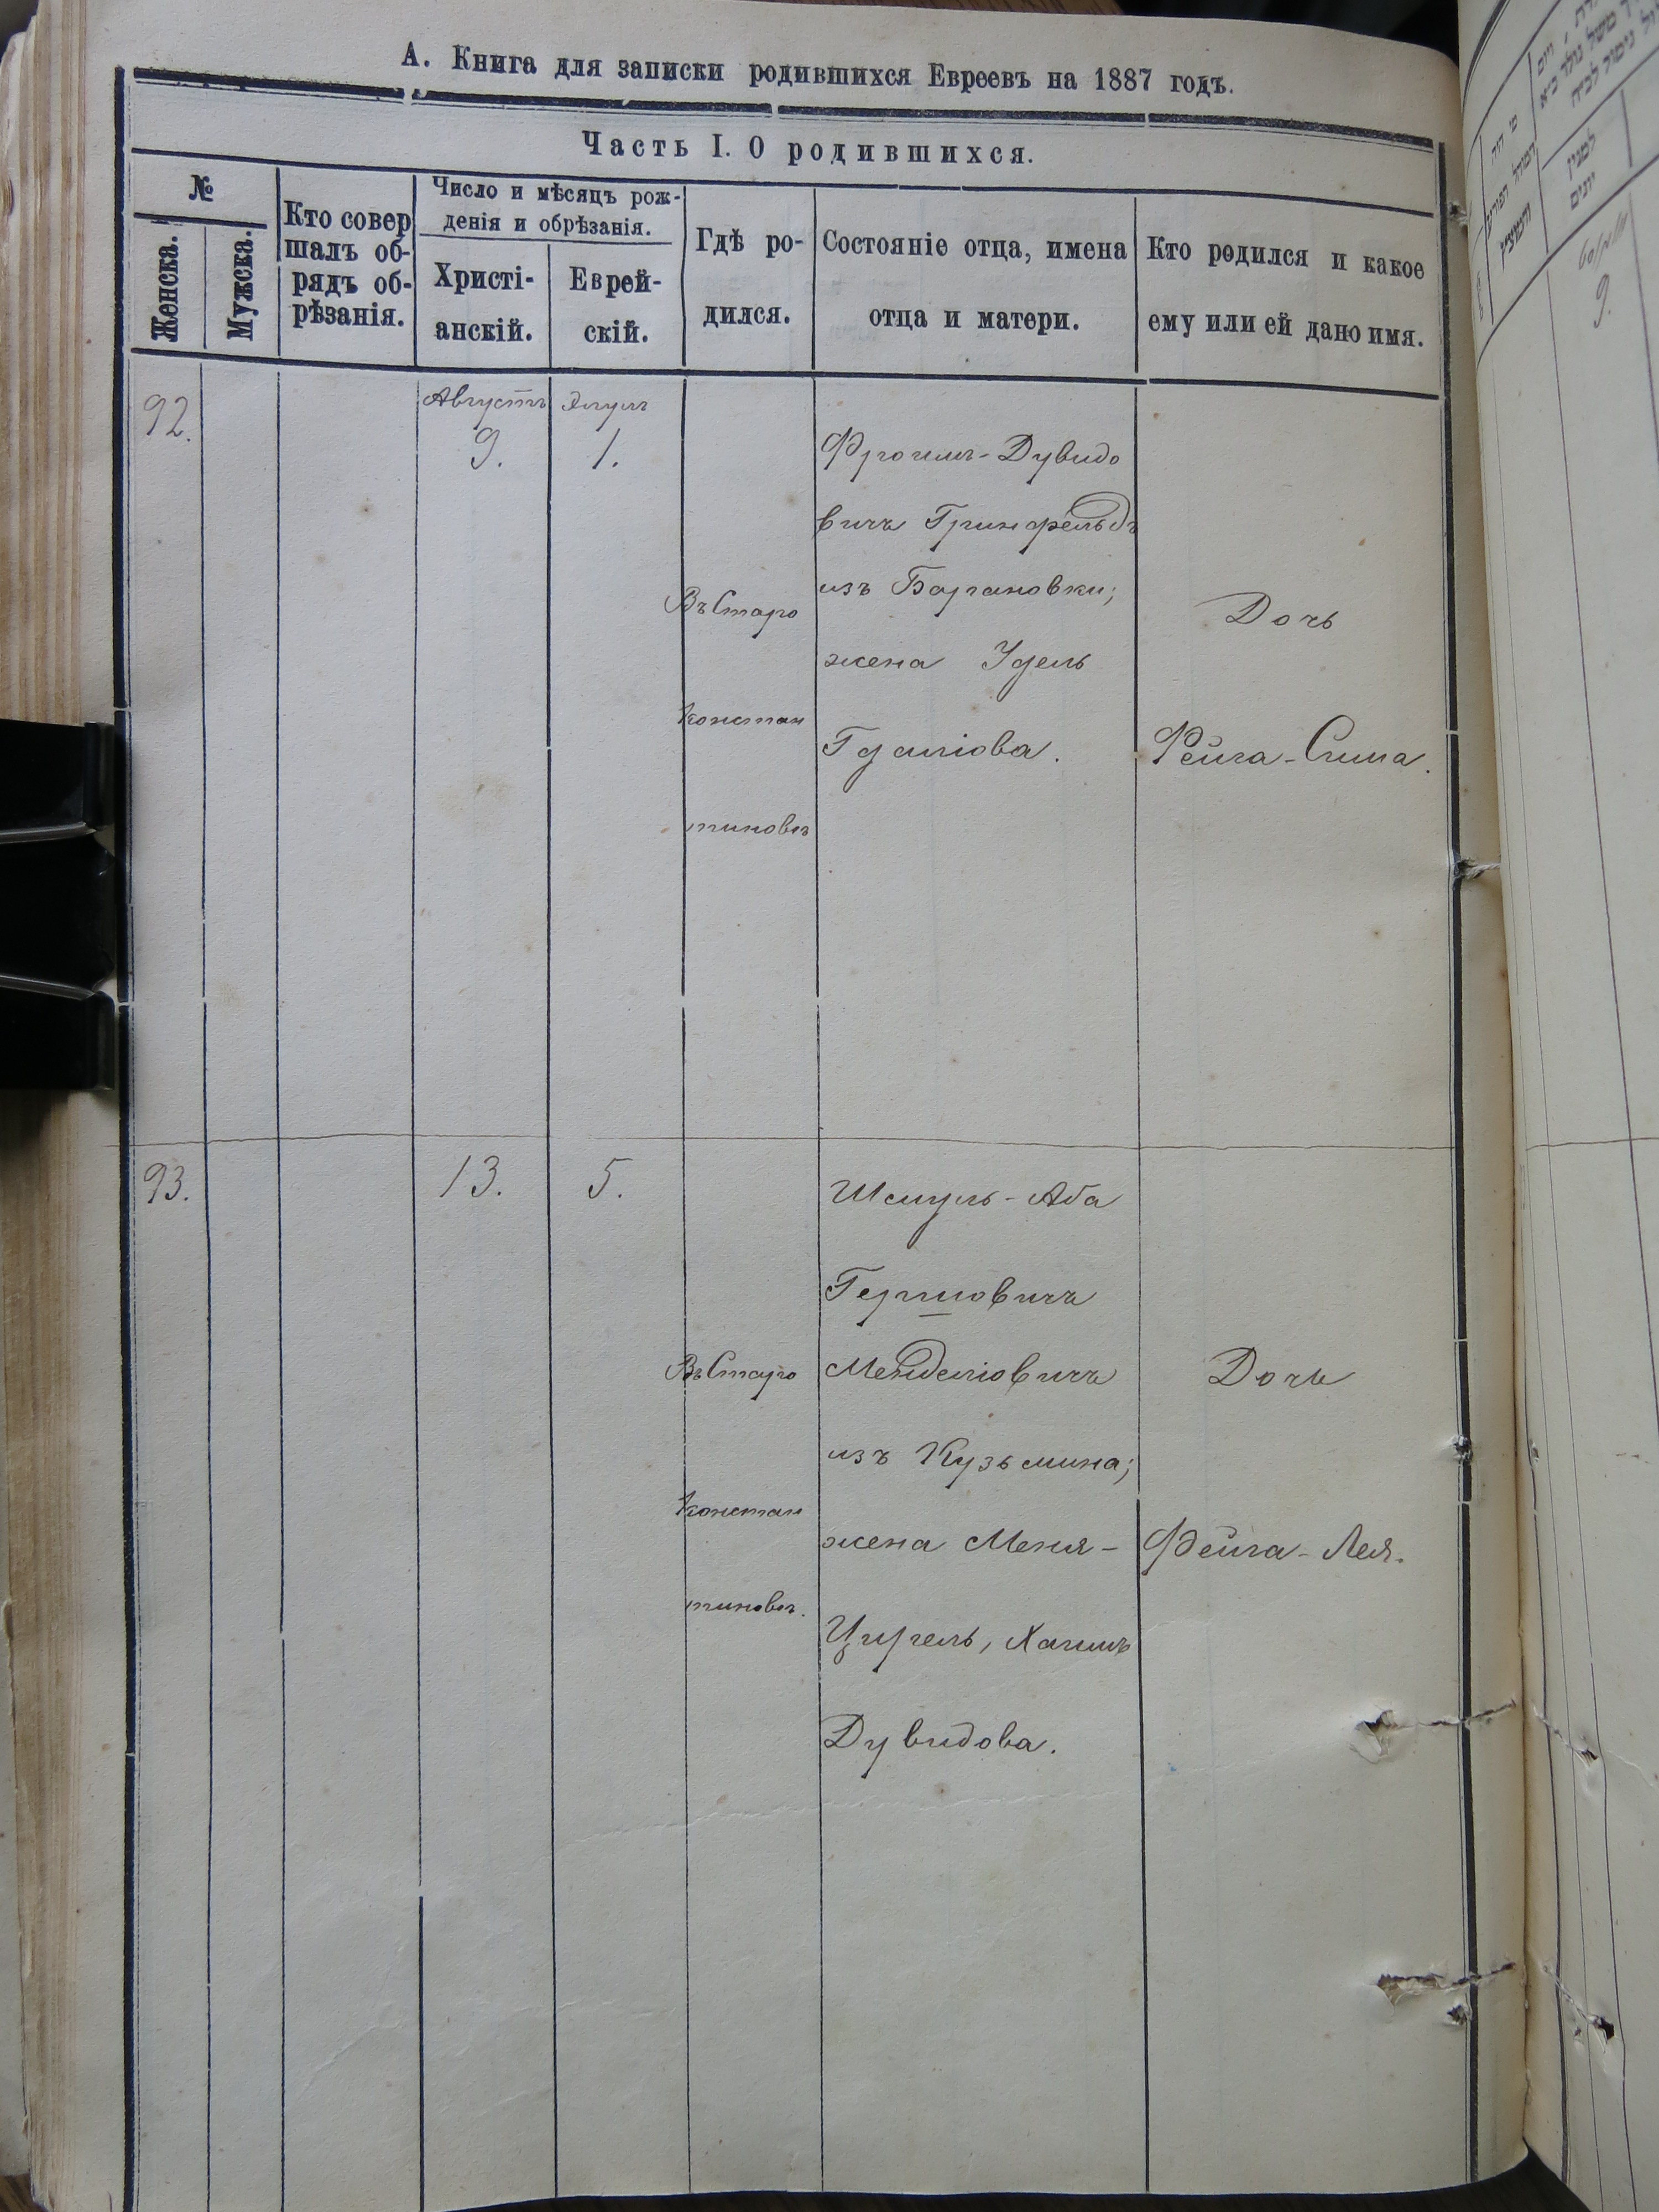 А. Книга для записки родившихся Евреевъ на 1887 годъ.
Часть I. О родившихся.
№
Женска.
Мужска.
Кто совер
шалъ об-
рядъ об-
рѣзанія.
Число и мѣсяцъ рож-
денія и обрѣзанія.
Христі-
анскій.
Еврей-
скій.
Гдѣ ро-
дился.
Состояніе отца, имена
отца и матери.
Кто родился и какое
ему или ей дано имя.
92.
Августъ
9.
Элулъ
1.
Въ Старо
констан
тиновѣ
Фроимъ-Дувидо
вичъ Гринфельдъ
изъ Барановки;
жена Удель
Гдаліова.
Дочь
Фейга-Сима.
93.
13.
5.
Въ Старо
констан
тиновѣ.
Шмуль-Аба
Гершовичъ
Менделіовичъ
изъ Кузьмина;
жена Меня-
Цирель, Хаимъ
Дувидова.
Дочь
Фейга-Лея.
9.